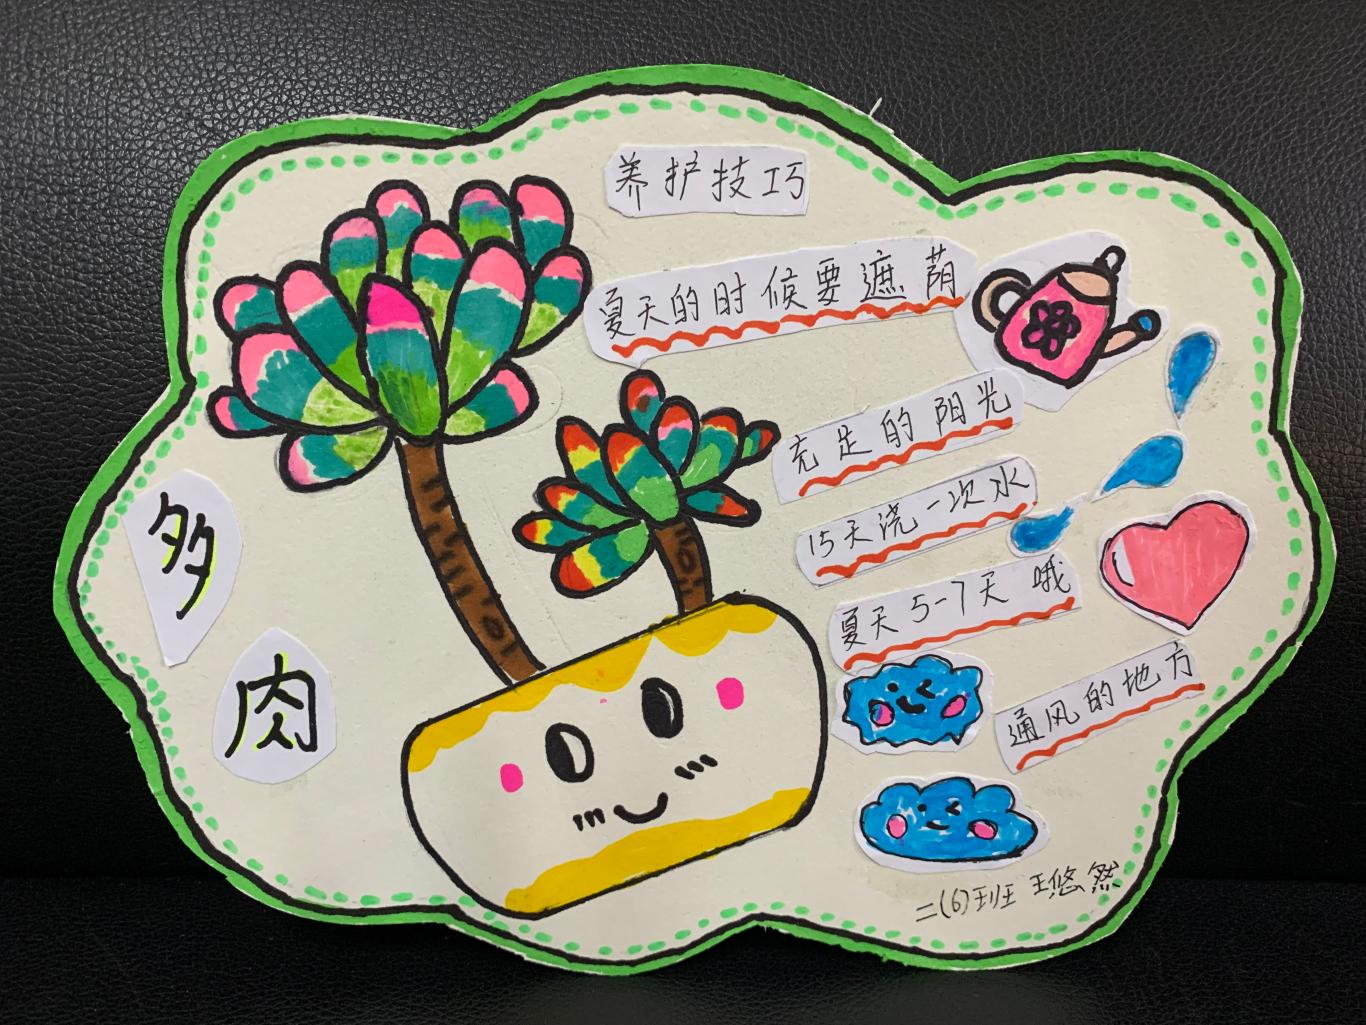 养护技巧
夏天的时候要遮荫
充足的阳光
15天浇一次水
夏天5-7天哦
通风的地方
多
肉
二(6)班 王悠然